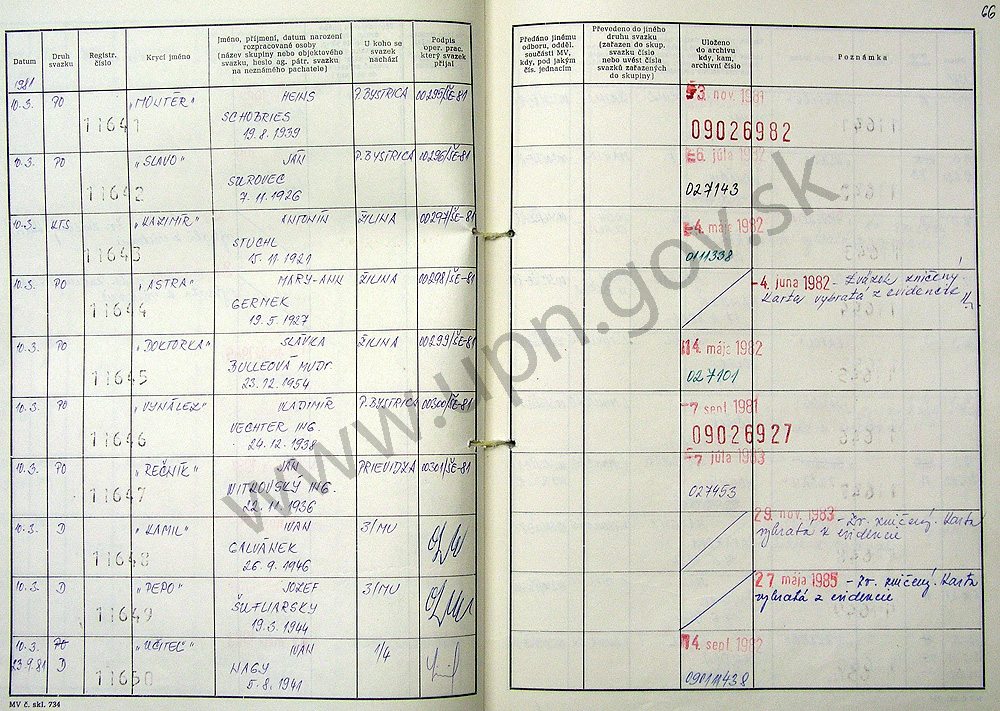 66
Datum
Druh svazku
Registr. číslo
Krycí jméno
Jméno, příjmení, datum narození
rozpracované osoby
(název skupiny nebo objektového
svazku, heslo ag. pátr. svazku
na neznámého pachatele)
U koho se
svazek
nachází
Podpis
oper. prac.
který svazek
přijal
Předáno jinému
odboru, odděl.
součásti MV,
kdy, pod jakým
čís. jednacím
Převedeno do jiného
druhu svazku
(zařazen do skup.
svazku číslo
nebo uvést čísla
svazků zařazených
do skupiny)
Uloženo
do archivu
kdy, kam,
archivní číslo
Poznámka
1981
10.3. PO 11641 "MONTÉR" HEINS P. BYSTRICA 00295/ŠE-81 3. nov. 1981
SCHOBRIES 09026982
19.8.1939
10.3. PO 11642 "SLAVO" JÁN P. BYSTRICA 00296/ŠE-81 6. júla 1982
SUROVEC 027143
7.11.1926
10.3. KTS 11643 "KAZIMÍR" ANTONÍN ŽILINA 00297/ŠE-81 -4. mája 1982
STUCHL 0111338
15.11.1921
10.3. PO 11644 "ASTRA" MARY-ANN ŽILINA 00298/ŠE-81 -4. júna 1982 - Zväzok zničený.
GERMEK Karta vybratá z evidencie
19.5.1927
10.3. PO 11645 "DOKTORKA" SLÁVKA ŽILINA 00299/ŠE-81 14. mája 1982
BULLEOVÁ MUDr. 027101
23.12.1954
10.3. PO 11646 "VYNÁLEZ" VLADIMÍR P. BYSTRICA 00300/ŠE-81 -7 sept. 1981
VECHTER ING. 09026927
24.12.1938
10.3. PO 11647 "REČNÍK" JÁN PRIEVIDZA 10301/ŠE-81 -7 júla 1983
NITROVSKÝ ING. 027453
22.11.1936
10.3. D 11648 "KAMIL" IVAN 3/MU 29. nov. 1983 - Zv. zničený. Karta
GALVÁNEK vybratá z evidencie
26.9.1946
10.3. D 11649 "PEPO" JOZEF 3/MU 27 mája 1985 - Zv. zničený. Karta
ŠUTLIARSKY vybratá z evidencie
19.3.1944
10.3. PO 11650 "UČITEL" IVAN 1/4 14. sept. 1982
23.9.81 D NAGY
5.8.1941
MV č. skl. 734
www.upn.gov.sk